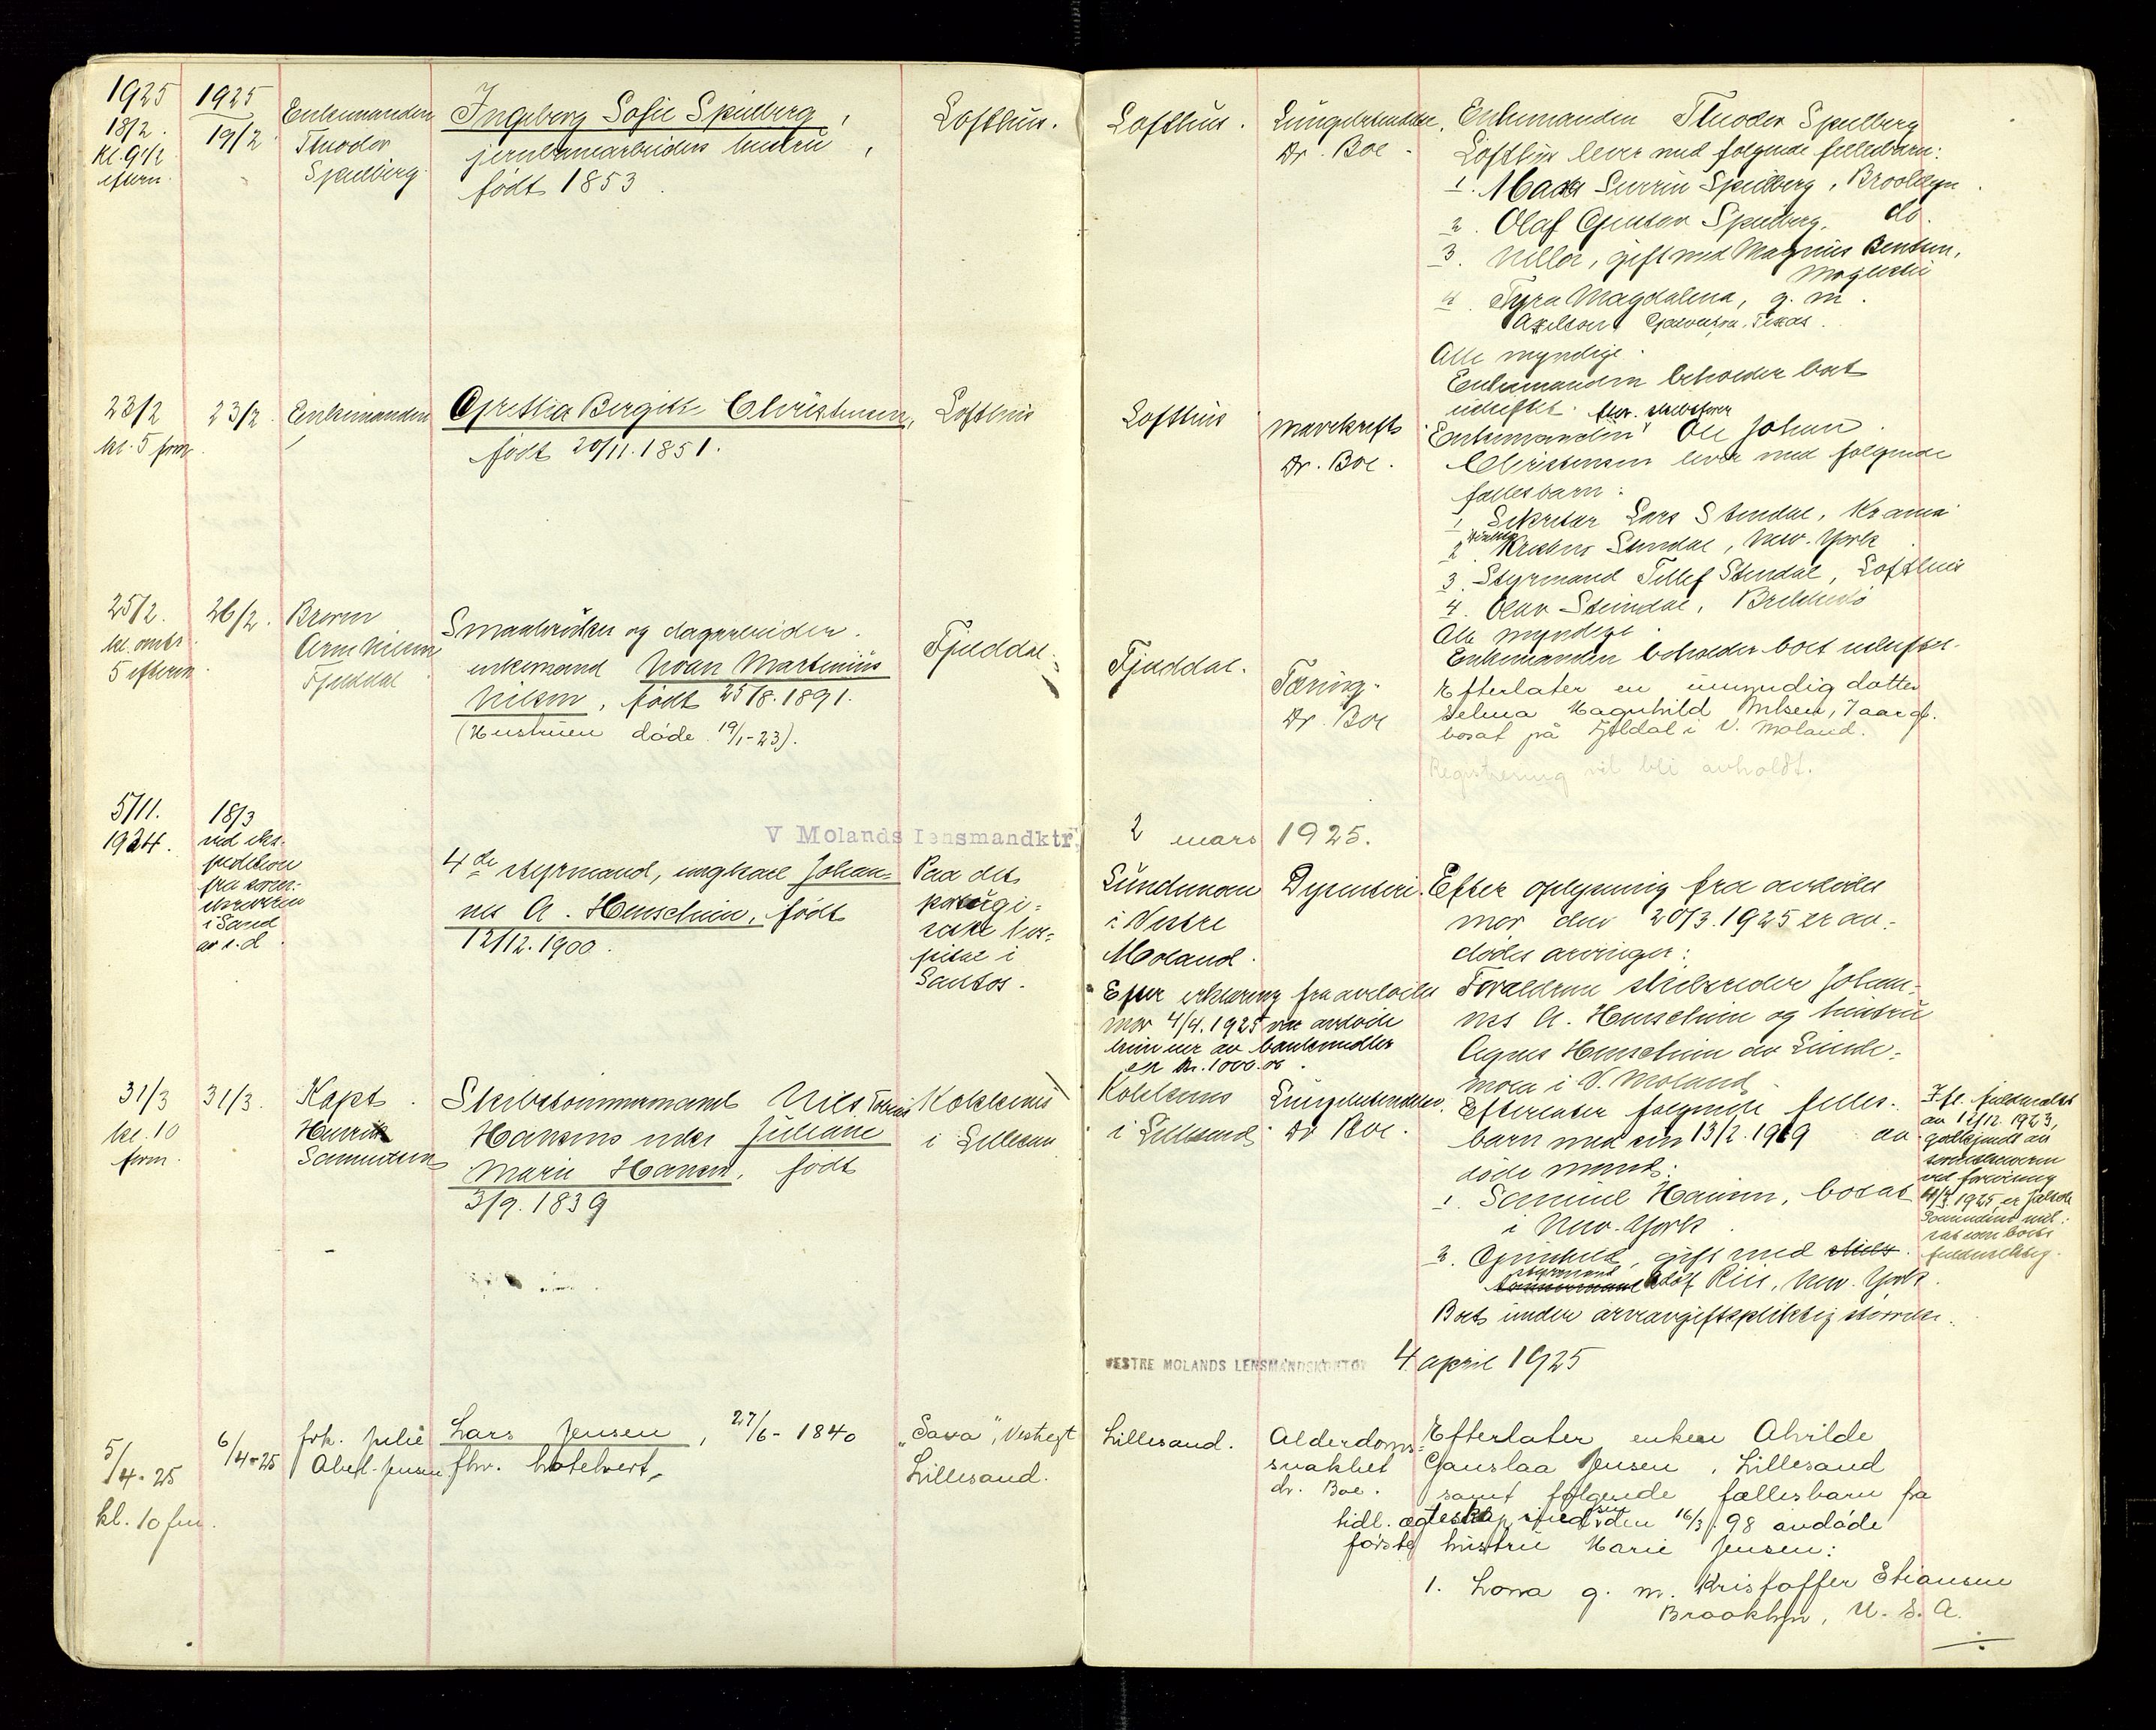 1925
18/2.
kl. 9 1/2
eftern.
1925
19/2
Enkemanden
Theodor
Spielberg
Ingeborg Sofie Spielberg,
jernbanearbeiders hustru,
født 1853.
Lofthus.
Lofthus.
Lungebetændelse.
Dr. Boe.
Enkemanden Theodor Spielberg
Lofthus lever med følgende fellesbarn:
1. Spielberg, Brooklyn.
2. Olaf Gustav Spielberg, do.
3. gift med Magnus Bentsen,
4. Tyra Magdalena, g. m.
Axelson, Galveston, Texas.
Alle myndige.
Enkemanden beholder boet
uskiftet.
23/2
kl. 5 fm.
23/2.
Enkemanden
Grethe Bergitte Christensen,
født 20/11. 1851.
Lofthus
Lofthus
Mavekreft
Dr. Boe.
Enkemanden Ole Johan
Christensen lever med følgende
fællesbarn:
1. Sekretær Lars Stendal, Krania
2. Stendal, New-York
3. Styrmand Tellef Stendal, Lofthus
4. Olav Stendal,
Alle myndige.
Enkemanden beholder boet uskiftet.
25/2.
kl. omtr.
5 efterm.
26/2.
Broren
Arne Nilsen
Fjelddal
Smaabruker og dagarbeider.
enkemand Noan Martinius
Nilsen, født 25/8. 1891.
(Hustruen døde 19/1-23).
Fjelddal.
Fjelddal.
Tæring.
Dr. Boe
Efterlater en umyndig datter
Selma Magnhild Nilsen, 7 aar g.
bosat på Fjeldal i V. Moland.
Registrering vil bli avholdt.
V Molands lensmandktr.
2 mars 1925.
5/11.
1924.
18/3
ved eks-
pedition
fra soren-
skriveren
i Sand
av s. d.
4de styrmand, ungkar Johan-
nes A. Henschien, født
12/12. 1900.
Paa det
portugi-
siske hos-
pital i
Santos.
i Vestre
Moland.
Dysenteri.
Efter erklæring fra avdødes
mor 4/4. 1925 var avdøde
kun eier av bankmidler
kr. 1000.00.
Efter oplysning fra avdødes
mor den 20/3. 1925 er av-
dødes arvinger:
Forældrene skibsreder Johan-
nes A. Henschien og hustru
Agnes Henschien av
i V. Moland.
31/3
kl. 10
form.
31/3.
Kapt.
Henrik
Samuelsen
Skibstømmermand Nils
Hansens enke Juliane
Marie Hansen, født
3/9. 1839
Kokkenes
i Lillesand
Kokkenes
i Lillesand.
Lungebetændelse.
Dr. Boe.
Efterlater følgende felles-
barn med sin 13/2. 1919 av-
døde mand:
1. Samuel Hansen, bosat
i New-York.
2. Gunhild, gift med
styrmand Adolf Riis, New-York.
Boet under arveavgiftspliktig størrelse.
av 12/12. 1923,
godkjendt av
sorenskriveren
VESTRE MOLANDS LENSMANDSKONTOR 4. april 1925
5/4-25
kl. 10 fm.
6/4-25
frk. Julie
Abel-Jensen
Lars Jensen, 27/6-1840
fhv. hotelvert,
"Saxa", Vestregt
Lillesand.
Lillesand.
Alderdoms-
svakhet
dr. Boe.
Efterlater enken Alvilde
Gauslaa Jensen, Lillesand
samt følgende fællesbarn fra
tidl. ægteskap med sin den 16/3. 98 avdøde
første hustru Marie Jensen:
1. Lova g. m. Kristoffer Etiansen
Brooklyn, U. S. A.